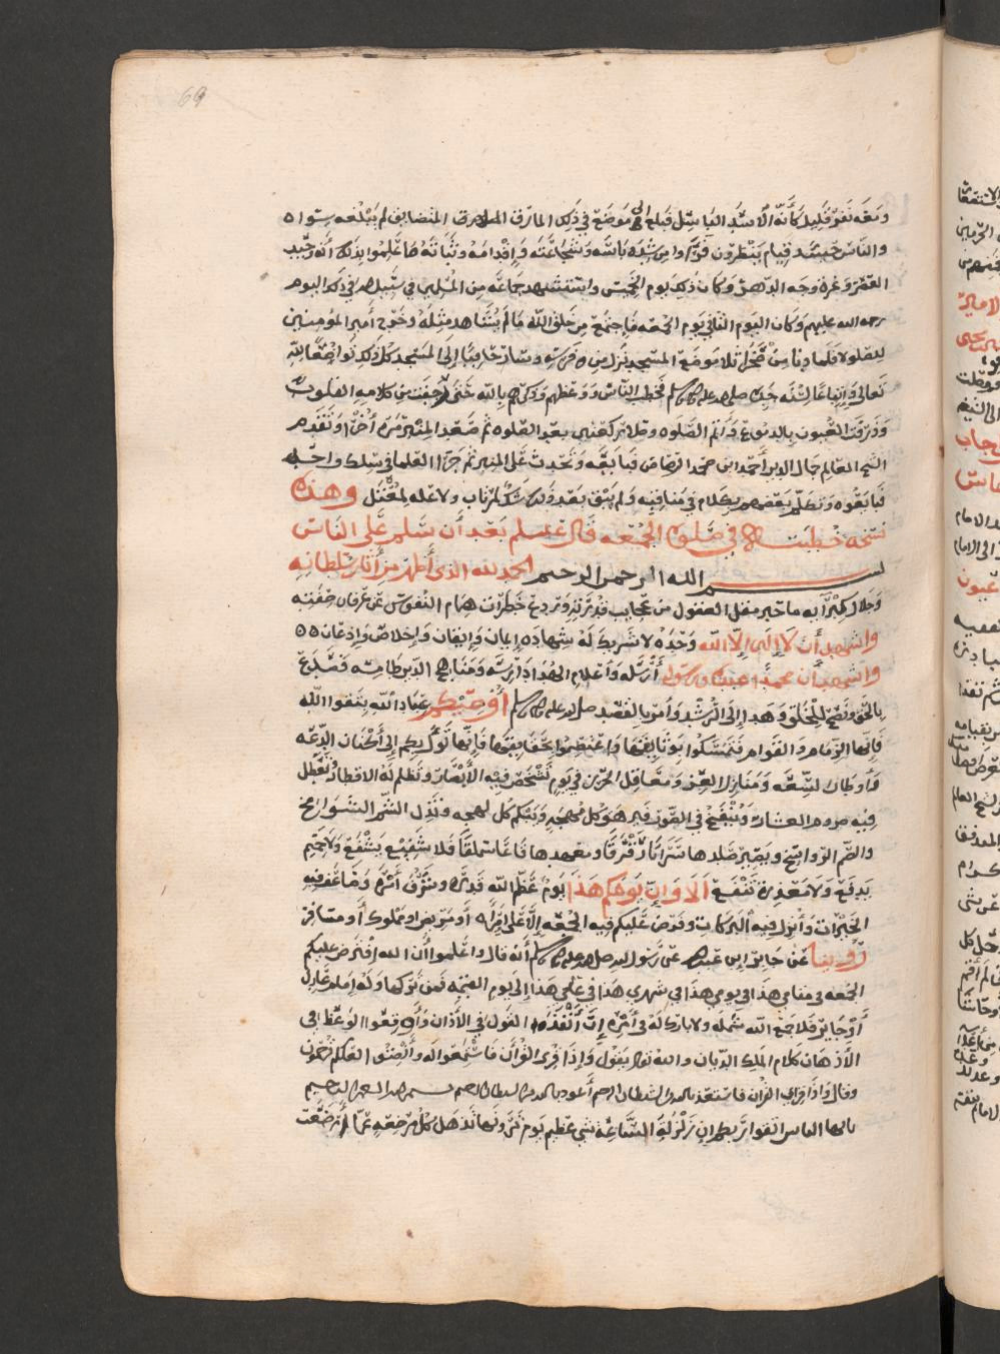 69
ومعه نفر قليل كأنه الأسد الباسل فبلغ إلى موضع في ذلك المازق المتضايق لم يبلغه سواه
والناس حينئذ قيام ينظرون فرأوا من شدة بأسه وشجاعته وإقدامه وثباته ما علموا بذلك أنه
العصر وغرة وجه الدهر وكان ذلك يوم الخميس واستشهد جماعة من المسلمين في سبيل الله في ذلك اليوم
رحمة الله عليهم وكان اليوم الثاني يوم الجمعة فاجتمع من خلق الله ما لم يشاهد مثله وخرج أمير المؤمنين
للصلوة فلما دنا من موضع المسجد نزل من فرسه وسار حافيا إلى المسجد كل ذلك تواضعا لله
تعالى واتباعا لسنة جده صلى الله عليه وآله وسلم فخطب الناس ووعظهم وذكرهم بالله حتى رجفت من كلامه القلوب
وذرفت العيون بالدموع وأتم الصلوة وصلى ركعتين بعد الصلوة ثم صعد المنبر مرة أخرى وتقدم
الشيخ العالم جمال الدين أحمد بن محمد الرصاص فبايعه وتحدث على المنبر ثم العلما في سلك واحد
فبايعوه وتكلم بعضهم بكلام في مناقبه ولم يبق بعد ذلك شك لمرتاب ولا علة لمعتل وهذه
نسخة خطبته في صلوة الجمعة قال عليلم بعد أن سلم على الناس
بسم الله الرحمن الرحيم الحمد لله الذي أظهر من آثار سلطانه
وجلال كبريائه ما حير مقل العقول من عجايب قدرته وردع خطرات همام النفوس عن عرفان صفته
وأشهد أن لا إله إلا الله وحده لا شريك له شهادة إيمان وإيقان وإخلاص وإذعان
وأشهد أن محمدا عبده ورسوله أرسله وأعلام الهدى دارسة ومناهج الدين طامسة فصدع
بالحق ونصح للخلق وهدى إلى الرشد وأمر بالقصد صلى الله عليه وآله وسلم أوصيكم عباد الله بتقوى الله
فإنها الزمام والقوام فتمسكوا بوثائقها واعتصموا بحقايقها فإنها تؤل بكم إلى أكنان الدعة
وأوطان السعة ومنازل العز ومعاقل الحرز في يوم تشخص فيه الأبصار وتظلم له الأقطار وتعطل
فيه صروم العشار وينفخ في الصور فيزهق كل مهجة وتبكم كل لهجة وتذل الشم الشوامخ
والصم الرواسخ ويصير صلدها سرابا رقرقا ومعهدها قاعا سملقا فلا شفيع يشفع ولا حميم
يدفع ولا معذرة تنفع ألا وإن يومكم هذا يوم عظم الله قدره وشرف أمره وضاعف فيه
الخيرات وأنزل فيه البركات وفرض عليكم فيه الجمعة إلا على امرأة أو مريض أو مملوك أو مسافر
روينا عن جابر ابن عبد الله عن رسول الله صلى الله عليه وآله وسلم أنه قال واعلموا أن الله افترض عليكم
الجمعة في مقامي هذا في يومي هذا في شهري هذا في عامي هذا إلى يوم القيمة فمن تركها وله إمام عادل
أو جاير فلا جمع الله شمله ولا بارك له في أمره إن أنفذ القول في الآذان وأوقع الوعظ في
الأذهان كلام الملك الديان والله تعالى يقول وإذا قرئ القرآن فاستمعوا له وأنصتوا لعلكم ترحمون
وقال وإذا قرأت القرآن فاستعذ بالله من الشيطان الرجيم أعوذ بالله من الشيطان الرجيم بسم الله الرحمن الرحيم
يا أيها الناس اتقوا ربكم إن زلزلة الساعة شيء عظيم يوم ترونها تذهل كل مرضعة عما أرضعت